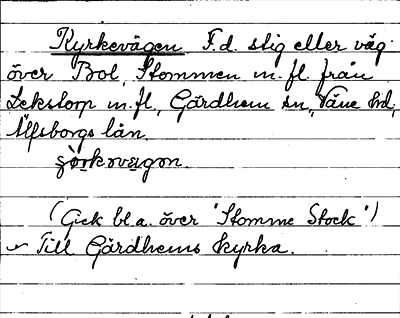 Kyrkevägen F.d. stig eller väg
över Bol, Stommen m.fl. från
Lekstorp m.fl., Gärdhem sn, Väne hd,
Älfsborgs län.
(Gick bl.a. över "Stomme Stock")
Till Gärdhems kyrka.